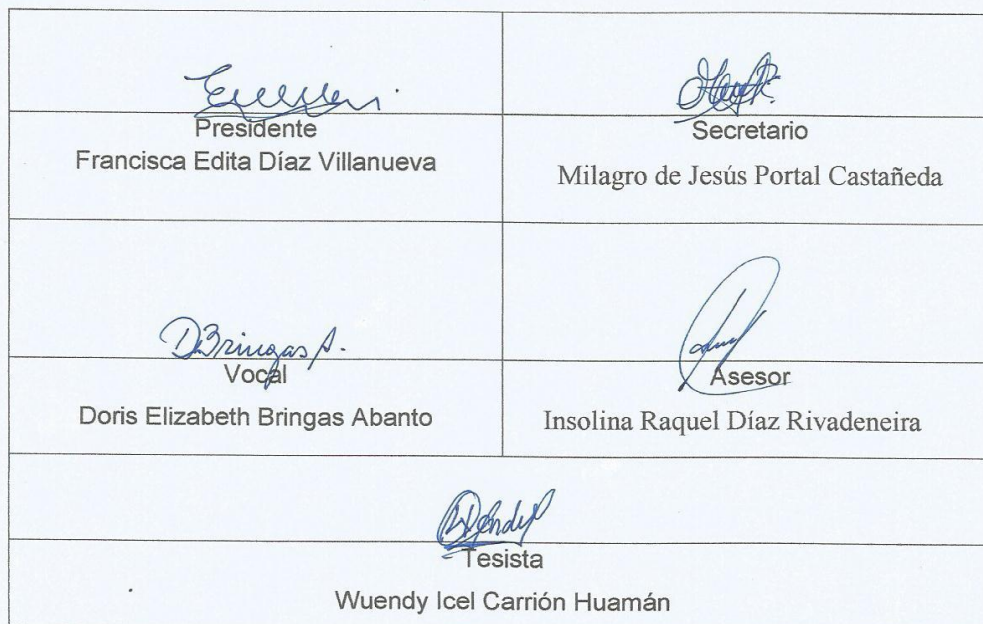 Presidente
Francisca Edita Díaz Villanueva
Secretario
Milagro de Jesús Portal Castañeda
DBringas A.
Vocal
Doris Elizabeth Bringas Abanto
Asesor
Insolina Raquel Díaz Rivadeneira
Tesista
Wuendy Icel Carrión Huamán